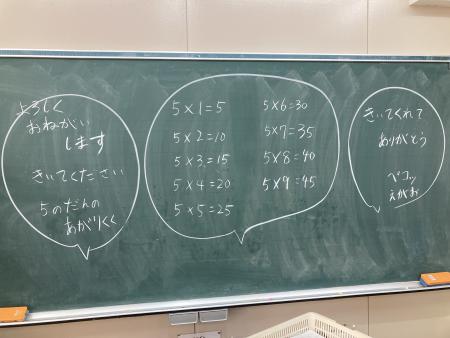 よろしく
おねがい
します
きいてください
5のだんの
あがりくく
5×1=5
5×2=10
5×3=15
5×4=20
5×5=25
5×6=30
5×7=35
5×8=40
5×9=45
きいてくれて
ありがとう
ペコッ
えがお